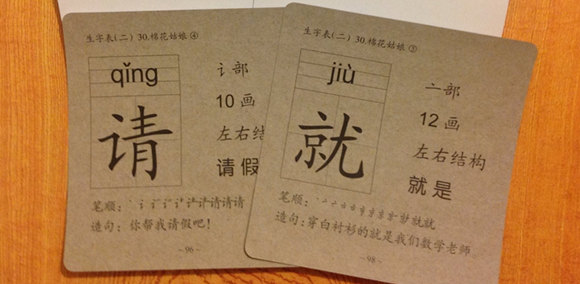 生字表(二) 30.棉花姑娘 ④
qǐng
请
讠部
10 画
左右结
请假
笔顺:丶讠讠讠讠讠讠请请请
造句: 你帮我请假吧!
~96~
生字表(二) 30.棉花姑娘 ③
jiù
就
亠部
12 画
左右结构
就是
笔顺:就就
造句: 穿白衬衫的就是我们数学老师
~98~